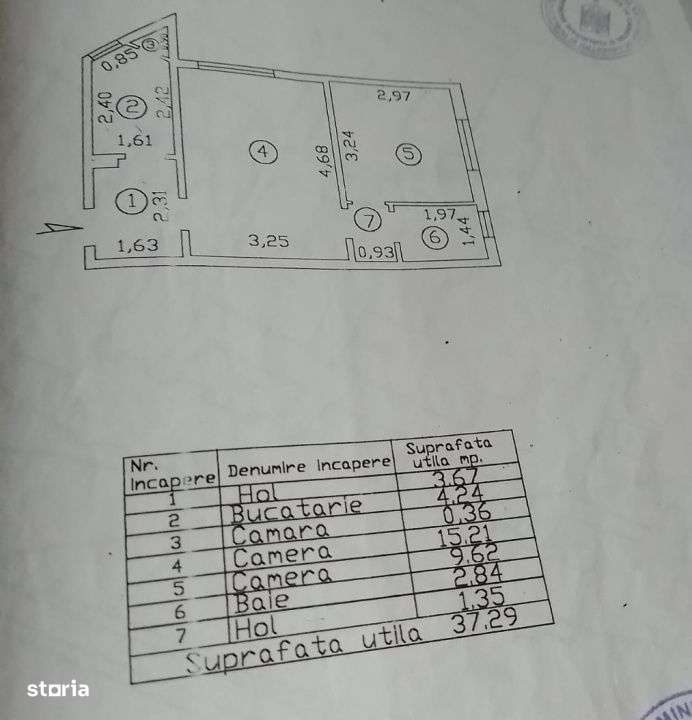 0,85
3
2,97
2,40
2
2,42
1,61
4
4,68
3,24
5
1
2,31
7
1,97
6
1,44
1,63
3,25
0,93
Nr. incapere Denumire incapere Suprafata utila mp.
1 Hol 3.67
2 Bucatarie 4.24
3 Camara 0.36
4 Camera 15.21
5 Camera 9.62
6 Baie 2.84
7 Hol 1.35
Suprafata utila 37.29
storia